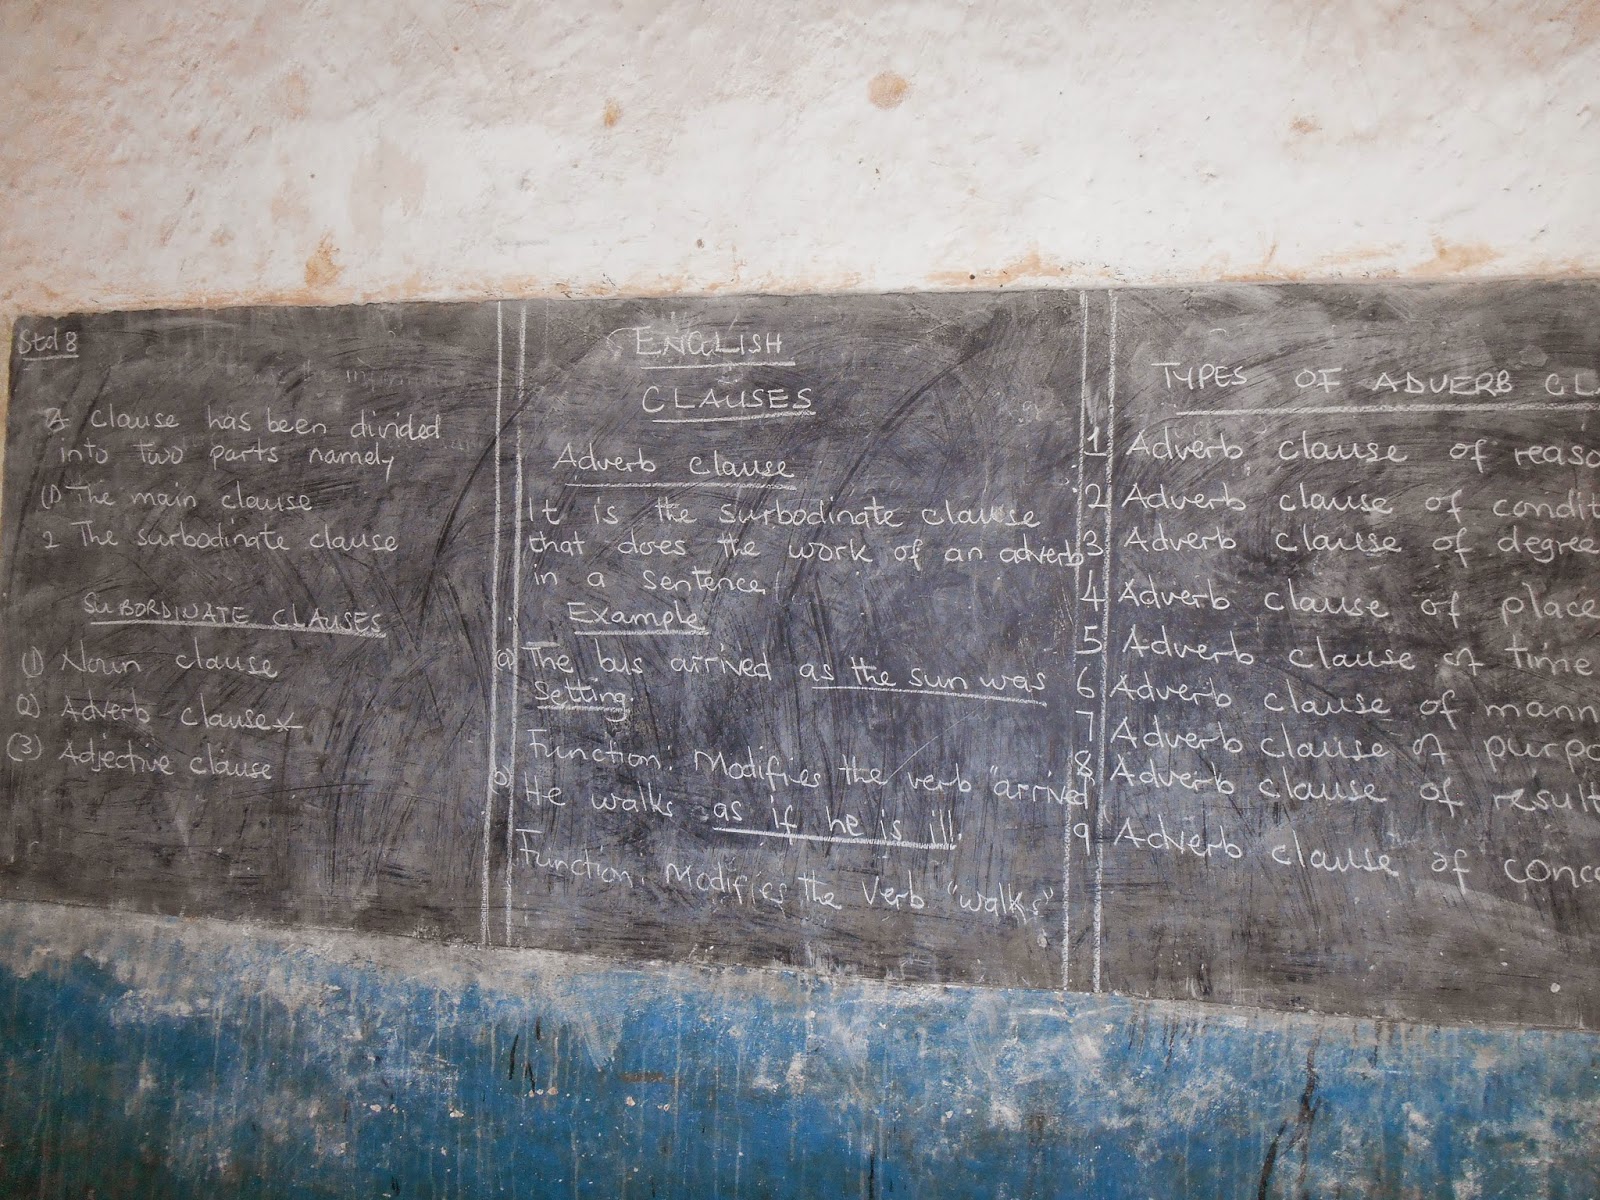 Std 8
A clause has been divided
into two parts namely
(1) The main clause
2 The surbodinate clause
SUBORDINATE CLAUSES
(1) Noun clause
(2) Adverb clause*
(3) Adjective clause
ENGLISH
CLAUSES
Adverb clause
It is the surbodinate clause
that does the work of an adverb
in a sentence.
Example
a) The bus arrived as the sun was
setting.
Function: Modifies the verb "arrived
b) He walks as if he is ill.
Function: Modifies the verb "walks"
TYPES OF ADVERB CL
1 Adverb clause of reaso
2 Adverb clause of condit
3 Adverb clause of degree
4 Adverb clause of place
5 Adverb clause of time
6 Adverb clause of mann
7 Adverb clause of purpo
8 Adverb clause of result
9 Adverb clause of conce